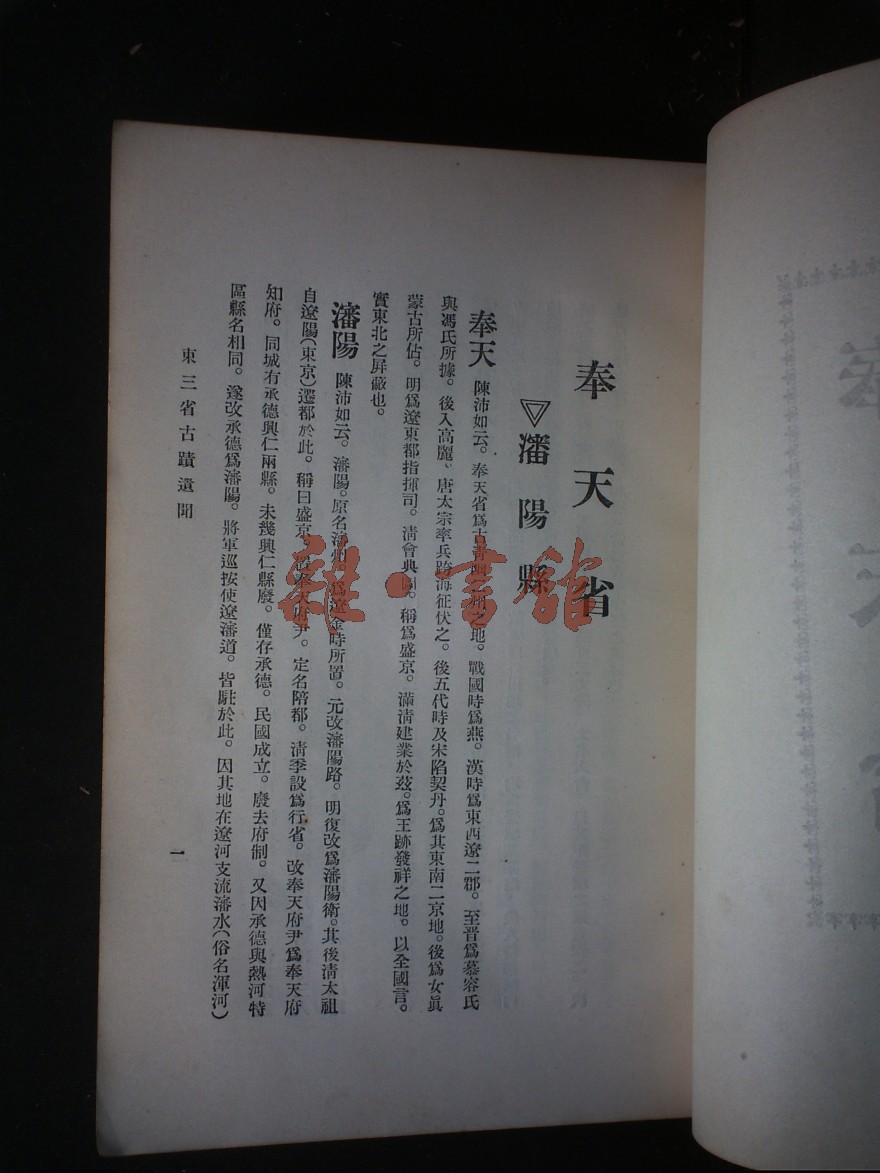 奉天省
瀋陽縣
奉天 陳沛如云。奉天省爲古青幽之州之地。戰國時爲燕。漢時爲東西遼二郡。至晉爲慕容氏
與馮氏所據。後入高麗。唐太宗率兵跨海征伏之。後五代時及宋陷契丹。爲其東南二京地。後爲女眞
蒙古所佔。明爲遼東都指揮司。清會典圖。稱爲盛京。滿清建業於茲。爲王跡發祥之地。以全國言。
實東北之屏蔽也。
瀋陽 陳沛如云。瀋陽。原名瀋州。爲遼金時所置。元改瀋陽路。明復改爲瀋陽衛。其後清太祖
自遼陽(東京)遷都於此。稱曰盛京。設奉天府尹。定名陪都。清季設爲行省。改奉天府尹爲奉天府
知府。同城有承德興仁兩縣。未幾興仁縣廢。僅存承德。民國成立。廢去府制。又因承德與熱河特
區縣名相同。遂改承德爲瀋陽。將軍巡按使遼瀋道。皆駐於此。因其地在遼河支流瀋水(俗名渾河)
東三省古蹟遺聞
一
雜·書館